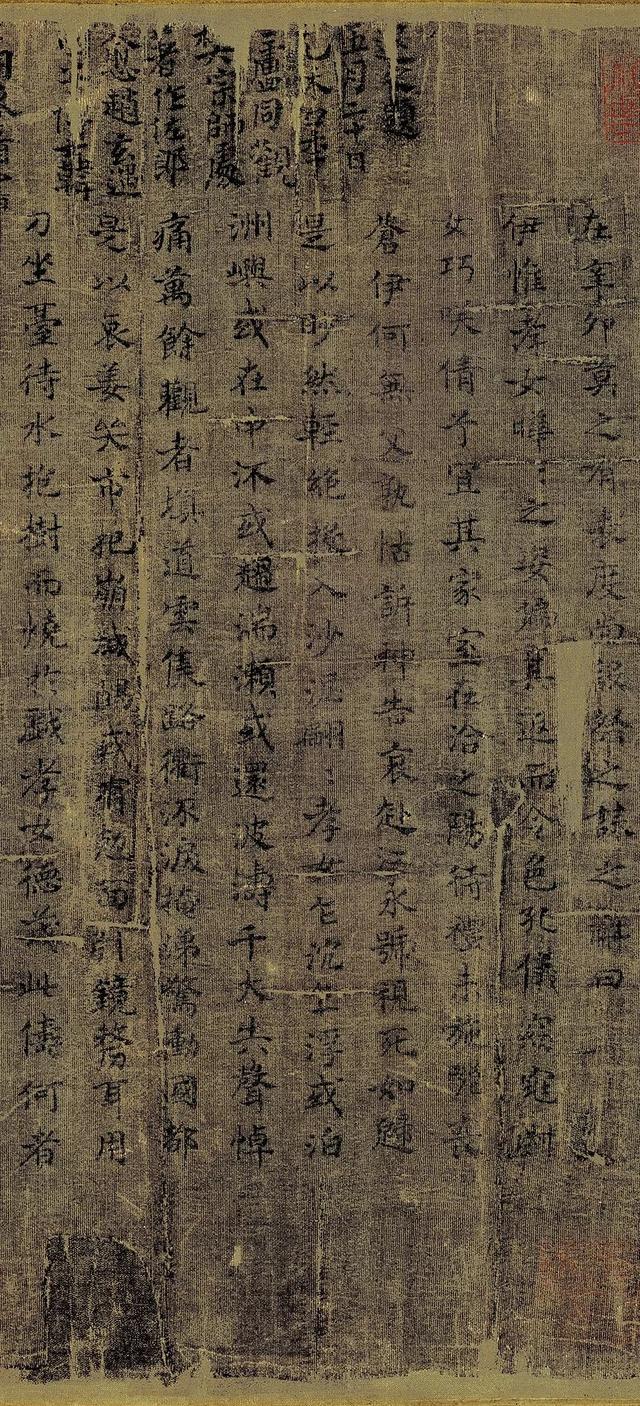 愈趙玄遇
著作佐郎
樊宗師處
士盧同觀
元和四年
五月二十日
退之題
在辛卯莫之有表度尚設祭之誄之辭曰
伊惟孝女曄〻之姿偏其返而令色孔儀窈窕淑
女巧咲倩兮宜其家室在洽之陽待禮未施嗟喪
蒼伊何無父孰怙訴神告哀赴江永號視死如歸
是以眇然輕絕投入沙泥翩〻孝女乍沉乍浮或泊
洲嶼或在中沠或趨湍瀨或還波濤千夫失聲悼
痛萬餘觀者填道雲集路衢沠淚掩涕驚慟國都
是以哀姜哭市杞崩城隅或有尅面引鏡剺耳用
刀坐臺待水抱樹而燒於戲孝女德茂此儔何者